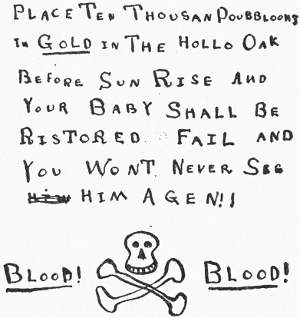 PLACE TEN THOUSAN DOUBBLOONS
IN GOLD IN THE HOLLO OAK
BEFORE SUN RISE AND
YOUR BABY SHALL BE
RISTORED. FAIL AND
YOU WONT NEVER SEE
HIM AGEN!!
BLOOD! BLOOD!